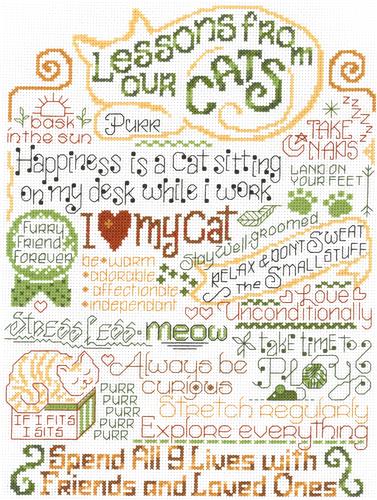 Lessons from
our CATS
bask
in the sun
Purr
zzzzz
TAKE
NAPS
Happiness is a cat sitting
on my desk while i work
LAND ON
YOUR FEET
Furry
Friend
Forever
I ❤ my Cat
Stay well-groomed
be • warm
• adorable
• affectionate
• independant
RELAX & DONT SWEAT
the SMALL STUFF
Love
Unconditionally
STRESS LESS •
meow
take time to
PLAY
Always be
curious
IF I FITS
I SITS
PURR
PURR
PURR
PURR
PURR
Stretch regularly
Explore everything
Spend All 9 Lives with
Friends and Loved Ones